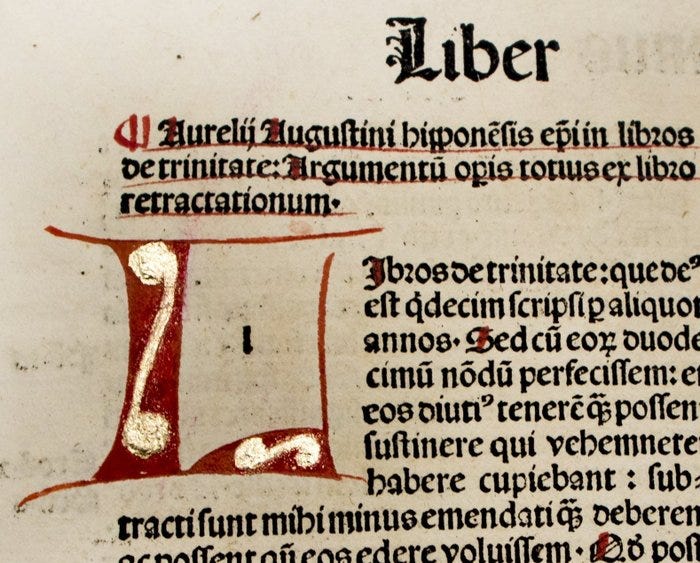 Liber
¶ Aurelij Augustini hipponēsis ep̄i in libros
de trinitate: Argumentū op̄is totius ex libro
retractationum.
L
l
Ibros de trinitate: que deꝰ
est q̇decim scripsi ꝑ aliquot
annos. Sed cū eoꝝ duode
cimū nōdū perfecissem: et
eos diutiꝰ tenerē q̄ꝫ possen
sustinere qui vehemnete
habere cupiebant : sub-
tracti sunt mihi minus emendati q̄ꝫ deberen
ac possent qn̄ eos edere voluissem. Qđ post